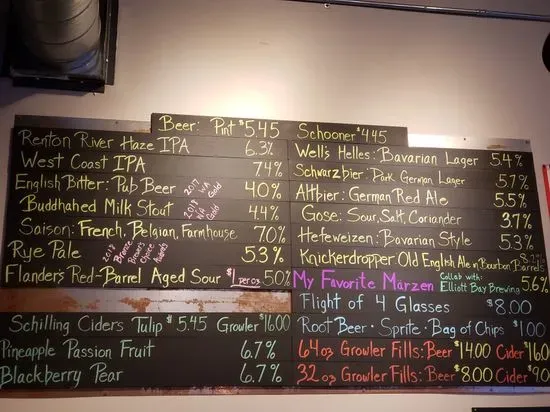 Beer: Pint $5.45 Schooner $4.45
Renton River Haze IPA 6.3%
West Coast IPA 7.4%
English Bitter: Pub Beer 2017 WA Gold 4.0%
Buddhahed Milk Stout 2018 WA Gold 4.4%
Saison: French, Belgian, Farmhouse 7.0%
Rye Pale 2017 Bronze Awards 5.3%
Flander's Red-Barrel Aged Sour $1 per oz 5.0%
Well's Helles: Bavarian Lager 5.4%
Schwarzbier: Dark German Lager 5.7%
Altbier: German Red Ale 5.5%
Gose: Sour, Salt, Coriander 3.7%
Hefeweizen: Bavarian Style 5.3%
Knickerdropper Old English Ale in Bourbon Barrels
My Favorite Marzen Collab with: Elliott Bay Brewing 5.6%
Flight of 4 Glasses $8.00
Root Beer · Sprite · Bag of Chips $1.00
64oz Growler Fills: Beer $14.00 Cider $16.0
32oz Growler Fills: Beer $8.00 Cider $9.0
Schilling Ciders Tulip $5.45 Growler $16.00
Pineapple Passion Fruit 6.7%
Blackberry Pear 6.7%